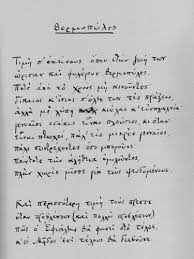 Θερμοπύλες
Τιμὴ σ' ἐκείνους ὅπου στὴν ζωή των
ὥρισαν καὶ φυλάγουν Θερμοπύλες.
Ποτὲ ἀπὸ τὸ χρέος μὴ κινοῦντες
δίκαιοι κ' ἴσιοι σ' ὅλες των τὲς πράξεις,
ἀλλὰ μὲ λύπη κιόλας κ' εὐσπλαχνία
γενναῖοι ὁσάκις εἶναι πλούσιοι, κι ὅταν
εἶναι πτωχοί, πάλ' εἰς μικρὸν γενναῖοι,
πάλι συντρέχοντες ὅσο μποροῦνε
πάντοτε τὴν ἀλήθεια ὁμιλοῦντες,
πλὴν χωρὶς μῖσος γιὰ τοὺς ψευδομένους.
Καὶ περισσότερη τιμὴ τοὺς πρέπει
ὅταν προβλέπουν (καὶ πολλοὶ προβλέπουν)
πὼς ὁ Ἐφιάλτης θὰ φανεῖ στὸ τέλος,
κ' οἱ Μῆδοι ἐπὶ τέλους θὰ διαβοῦνε